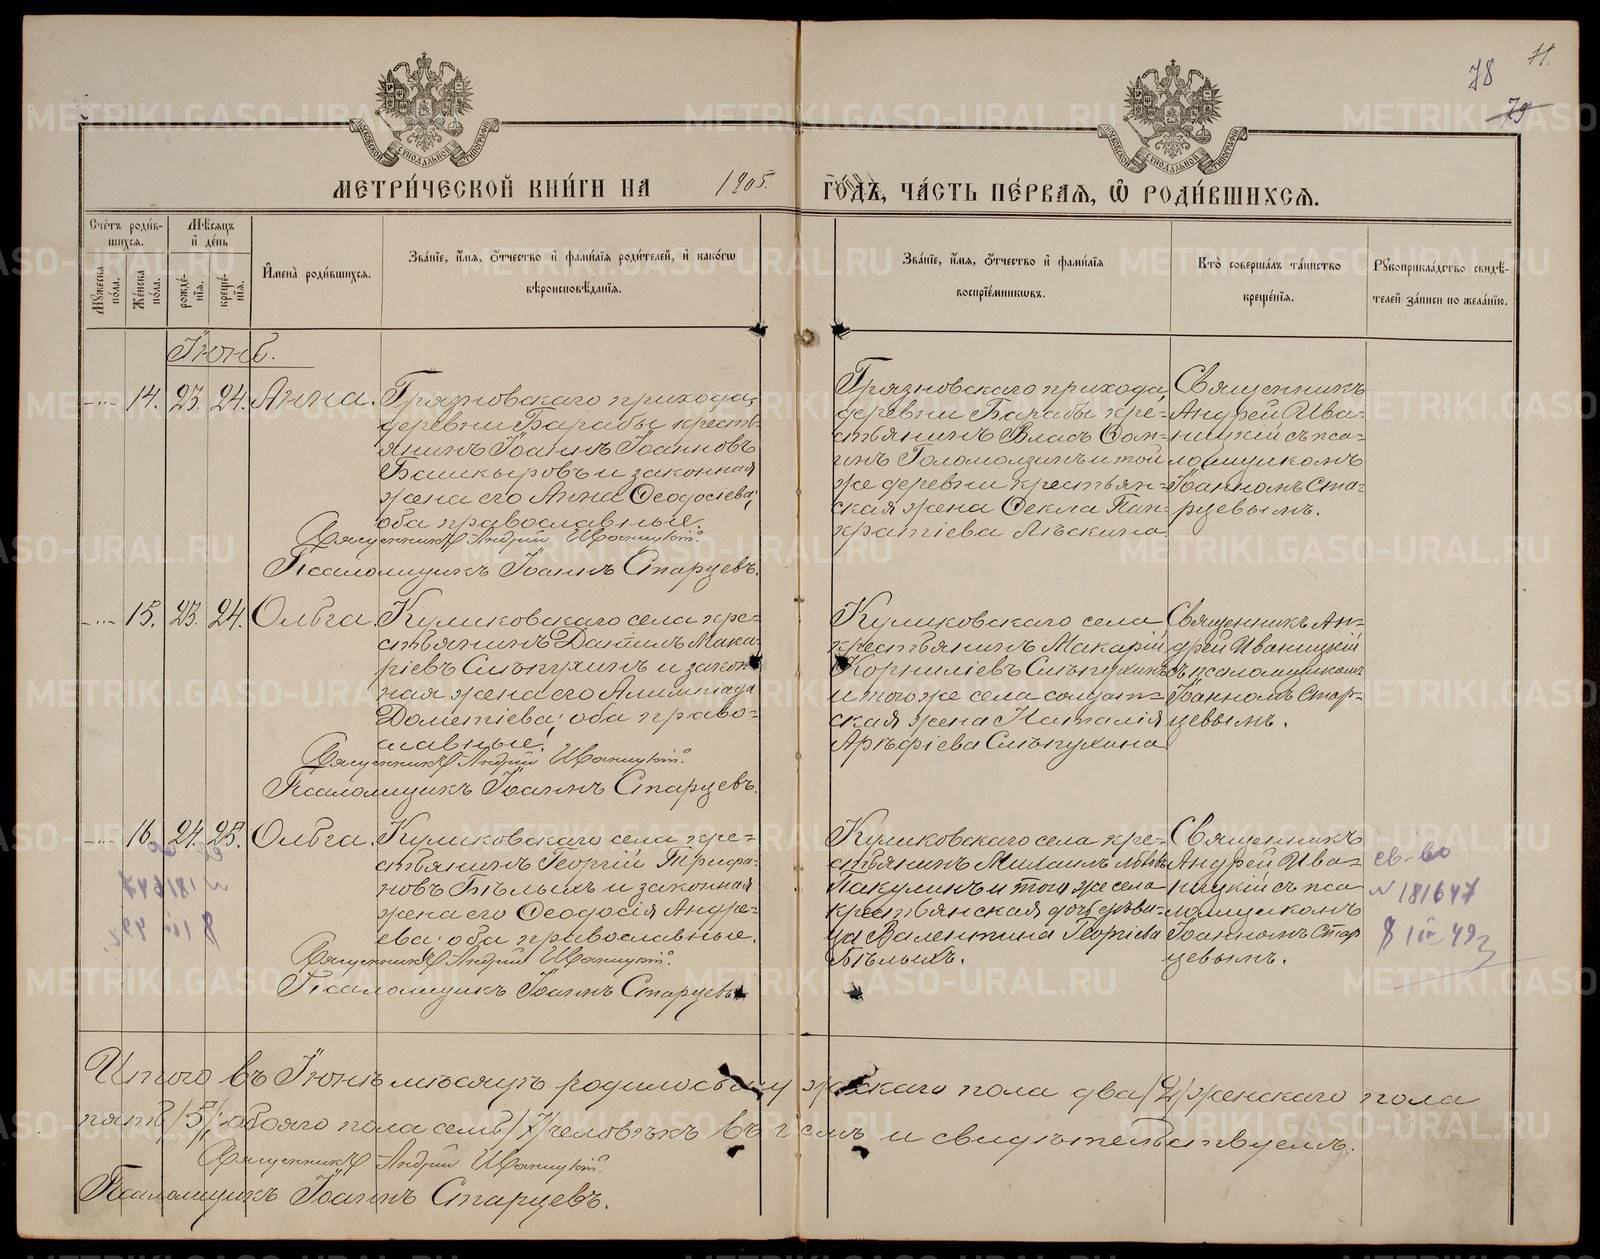 78
79
МЕТРИ́ЧЕСКОЙ КНИ́ГИ НА 1905. ГО́ДЪ, ЧА́СТЬ ПЕ́РВАѦ, Ѽ РОДИ́ВШИХСѦ.
Сче́тъ роди́в-
шихсѧ.
Мꙋ́жеска по́ла.
Же́нска по́ла.
Мѣ́сѧцъ
и҆ де́нь
рожде́-
нїѧ.
креще́-
нїѧ.
И҆мена̀ роди́вшихсѧ.
Зва́нїе, и҆́мѧ, ѻ҆́тчество и҆ фами́лїѧ роди́телей, и҆ како́гѡ
вѣроисповѣ́данїѧ.
Зва́нїе, и҆́мѧ, ѻ҆́тчество и҆ фами́лїѧ
воспрїе́мникѡвъ.
Кто̀ соверша́лъ та́инство
креще́нїѧ.
Рꙋкоприкла́дство свидѣ́-
телей за́писи по жела́нїю.
Іюнь.
14. 23. 24. Анна.
Грязновскаго прихода,
деревни Барабы кресть-
янинъ Іоаннъ Іоанновъ
Башкыровъ и законная
жена его Анна Ѳеодосіева;
оба православные.
Священникъ Андрей Иваницкій.
Псаломщикъ Іоаннъ Старцевъ.
Грязновскаго прихода,
деревни Барабы кре-
стьянинъ Власъ Ѳом-
инъ Голомолзинъ и той
же деревни крестьян-
ская жена Ѳекла Пан-
кратіева Лѣскина.
Священникъ
Андрей Ива-
ницкій съ пса-
ломщикомъ
Іоанномъ Ста-
рцевымъ.
15. 23. 24. Ольга.
Куликовскаго села кре-
стьянинъ Даніилъ Мака-
ріевъ Слѣпухинъ и закон-
ная жена его Алимпіада
Дометіева; оба право-
славные.
Священникъ Андрей Иваницкій.
Псаломщикъ Іоаннъ Старцевъ.
Куликовскаго села
крестьянинъ Макарій
Корниліевъ Слѣпухинъ
и того же села солдат-
ская жена Наталія
Арефіева Слѣпухина.
Священникъ Ан-
дрей Иваницкій
съ псаломщикомъ
Іоанномъ Стар-
цевымъ.
16. 24. 25. Ольга.
Куликовскаго села кре-
стьянинъ Георгій Трифа-
новъ Бѣлыхъ и законная
жена его Ѳеодосія Андре-
ева; оба православные.
Священникъ Андрей Иваницкій.
Псаломщикъ Іоаннъ Старцевъ.
Куликовскаго села кре-
стьянинъ Михаилъ
Пакулинъ и того же села
крестьянская дочь дѣви-
ца Валентина Георгіева
Бѣлыхъ.
Священникъ
Андрей Ива-
ницкій съ пса-
ломщикомъ
Іоанномъ Стар
цевымъ.
св-во
N 181647
8 III 49 г
Итого въ Іюнѣ мѣсяцѣ родилось мужескаго пола два /2/ женскаго пола
пять /5/, обоего пола семь /7/ человѣкъ въ чемъ и свидѣтельствуемъ.
Священникъ Андрей Иваницкій.
Псаломщикъ Іоаннъ Старцевъ.
METRIKI.GASO-URAL.RU